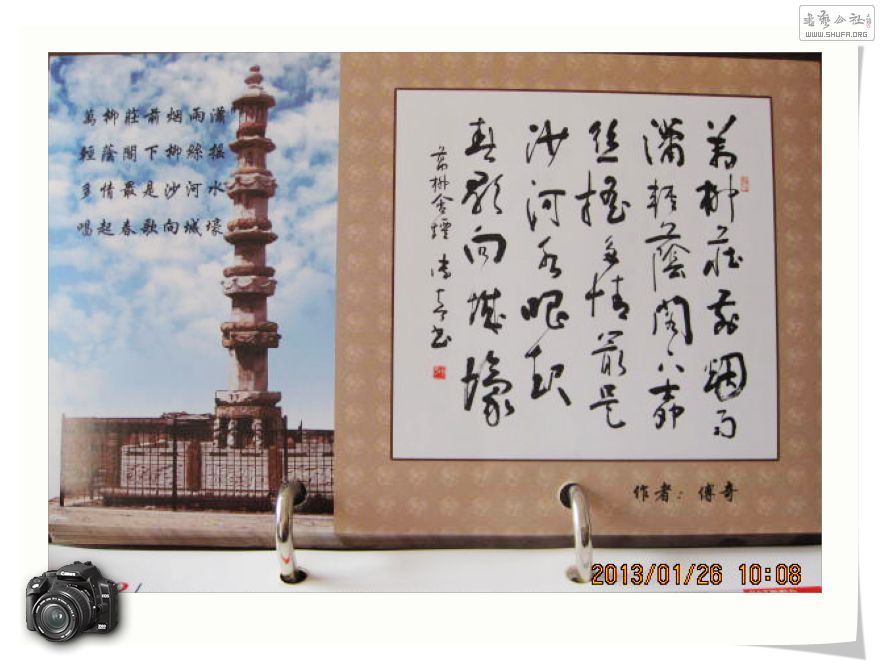 書藝公社
WWW.SHUFA.ORG
萬柳莊前烟雨瀟
輕蔭閣下柳絲搖
多情最是沙河水
唱起春歌向城壕
萬柳莊前烟雨
瀟輕蔭閣下柳
絲搖多情最是
沙河水唱起
春歌向城壕
前柳含煙 傅奇書
作者：傅奇
2013/01/26 10:08
Canon